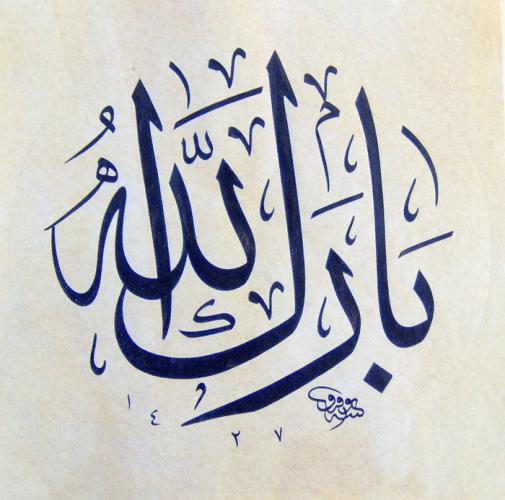 بَارَكَ اللَّهُ
١٤٢٧